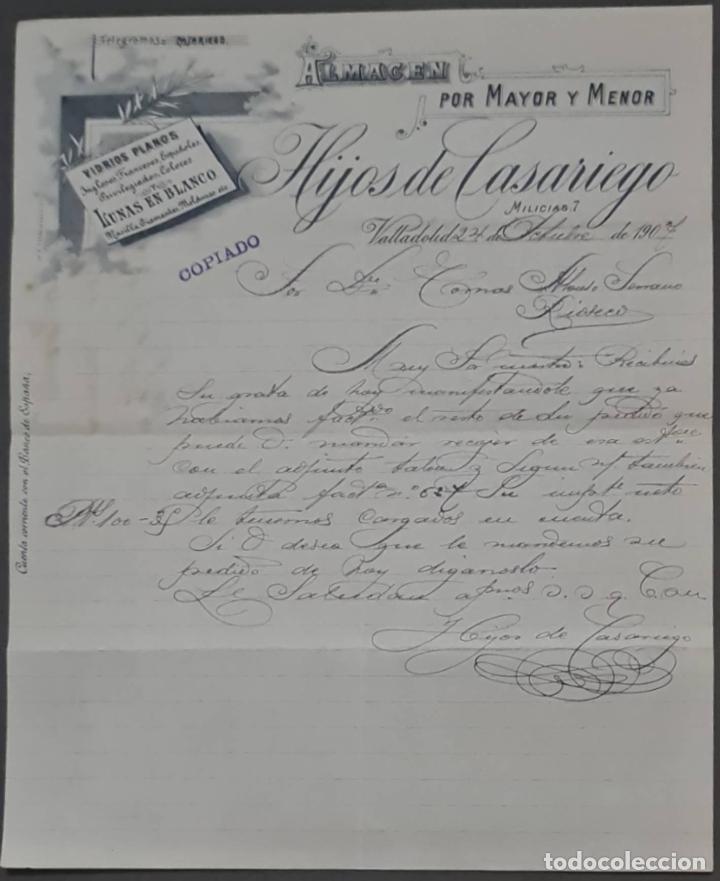 Telegramas: CASARIEGO.
ALMACEN
POR MAYOR Y MENOR
VIDRIOS PLANOS
Ingleses, Franceses, Españoles,
Privilegiados, Colores
Y
LUNAS EN BLANCO
Masilla, Diamantes, Molduras etc.
Hijos de Casariego
MILICIAS. 7
Valladolid 24 de Octubre de 1907
COPIADO
Sor Dn Tomas Alonso Serrano
Rioseco
Muy Sor nuestro: Recibimos
su grata de hoy manifestandole que ya
habiamos factdo el resto de su pedido que
puede V. mandar recojer de esa eston
con el adjunto talon y segun tambien
adjunta factra no 627 su impte neto
Pts 100-35 le tenemos cargados en cuenta.
Si V desea que le mandemos su
pedido de hoy diganoslo.
Le Saludan
Hijos de Casariego
Cuenta corriente con el Banco de España.
todocoleccion.net